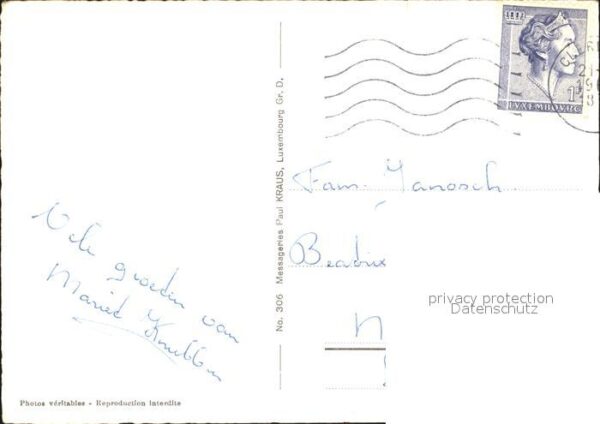 Vele groeten van
Mariet
No. 306 Messageries Paul KRAUS, Luxembourg Gr. D.
1F
LUXEMBOURG
Fam. Janosch
Beatrix
privacy protection
Datenschutz
Photos véritables - Reproduction interdite